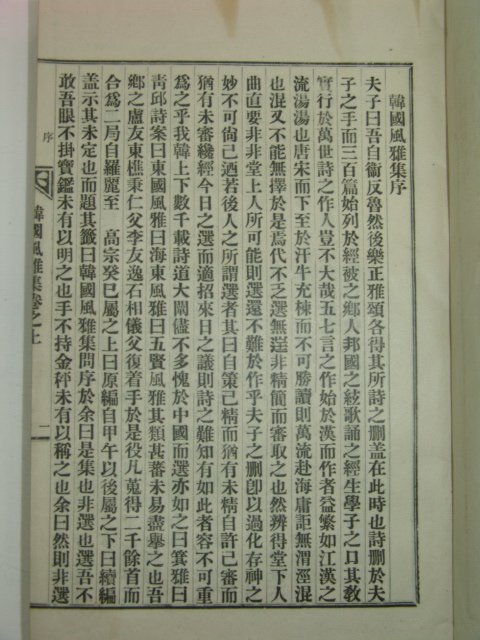 韓國風雅集序
夫子曰吾自衞反魯然後樂正雅頌各得其所詩之删盖在此時也詩删於夫
子之手而三百篇始列於經被之鄉人邦國之絃歌誦之經生學子之口其敎
實行於萬世詩之作人豈不大哉五七言之作始於漢而作者益繁如江漢之
流湯湯也唐宋而下至於汗牛充棟而不可勝讀則萬流赴海庸詎無渭涇混
也混又不能無擇於是焉代不乏選無迳非精簡而審取之也然辨得堂下人
曲直要非非堂上人所可能則選還不難於作乎夫子之删卽以過化存神之
妙不可尙已迺若後人之所謂選者其曰自策已精而猶有未精自許已審而
猶有未審纔經今日之選而適招來日之議則詩之難知有如此者容不可重
爲之乎我韓上下數千載詩道大闡儘不多愧於中國而選亦如之曰箕雅曰
靑邱詩案曰東國風雅曰海東風雅曰五賢風雅其類甚蕃未易盡擧之也吾
鄉之盧友東樵秉仁父李友逸石相儀父復着手於是役凡蒐得二千餘首而
合爲二局自羅麗至 高宗癸巳屬之上曰原編自甲午以後屬之下曰續編
盖示其未定也而題其籤曰韓國風雅集問序於余曰是集也非選也選吾不
敢吾眼不掛寶鑑未有以明之也手不持金秤未有以稱之也余曰然則非選
序
韓國風雅集卷之上
一